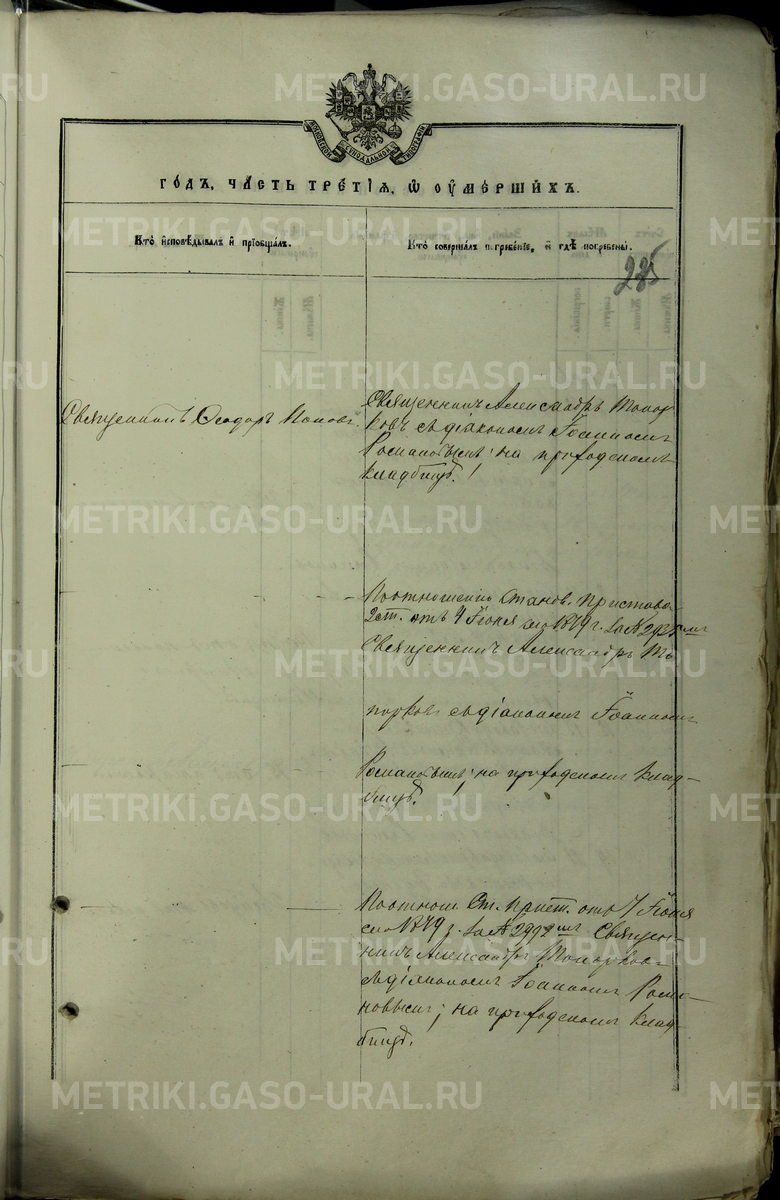 МОСКОВСКОЙ СѴНОДАЛЬНОЙ ТИПОГРАФІИ
ГО́ДЪ, ЧА́СТЬ ТРЕ́ТІѦ, Ѡ҆ ОУ҆МЕ́РШИХЪ.
Кто̀ и҆сповѣ́дывалъ и҆ прїѡбща́лъ.
Кто̀ соверша́лъ погребе́нїе, и҆ гдѣ̀ погребены̀.
225
Священникъ Ѳеодоръ Поповъ.
Священникъ Александръ Топор
ковъ съ діакономъ Іоанномъ
Романовымъ; на приходскомъ
кладбищѣ.
По отношенію Станов. Пристава
2 ст. отъ 4 Іюня сего 1879 г. за № 2925 мъ
Священникъ Александръ То
порковъ съ діакономъ Іоанномъ
Романовымъ; на приходскомъ клад-
бищѣ.
По отнош. Ст. Прист. отъ 7 Іюня
сего 1879 г. за № 2992 мъ Священ-
никъ Александръ Топорковъ
съ діакономъ Іоанномъ Рома-
новымъ; на приходскомъ клад-
бищѣ.
METRIKI.GASO-URAL.RU